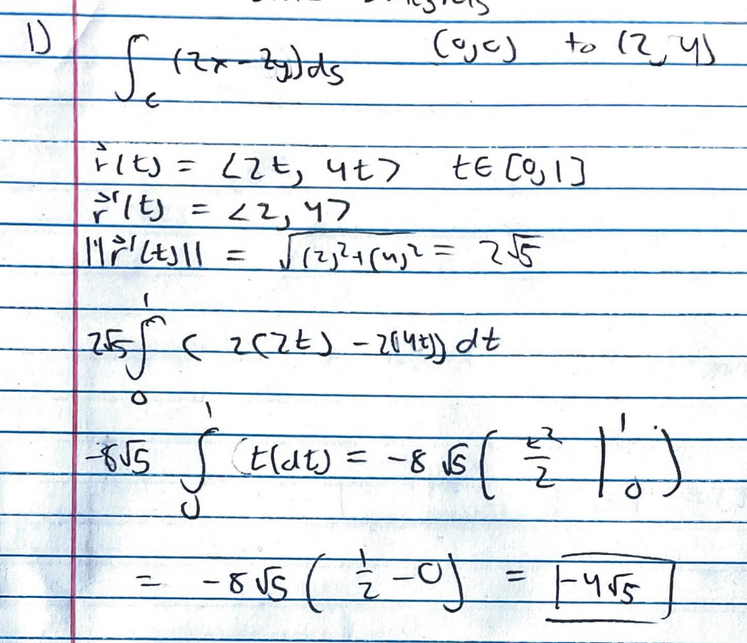 Line Integrals
1) ∫_C (2x - 2y) ds (0,0) to (2,4)
r⃗(t) = <2t, 4t> t ∈ [0,1]
r⃗'(t) = <2, 4>
||r⃗'(t)|| = √((2)²+(4)²) = 2√5
2√5 ∫_0^1 ( 2(2t) - 2(4t)) dt
-8√5 ∫_0^1 (t(dt) = -8√5 ( t²/2 |_0^1 )
= -8√5 ( 1/2 - 0 ) = -4√5